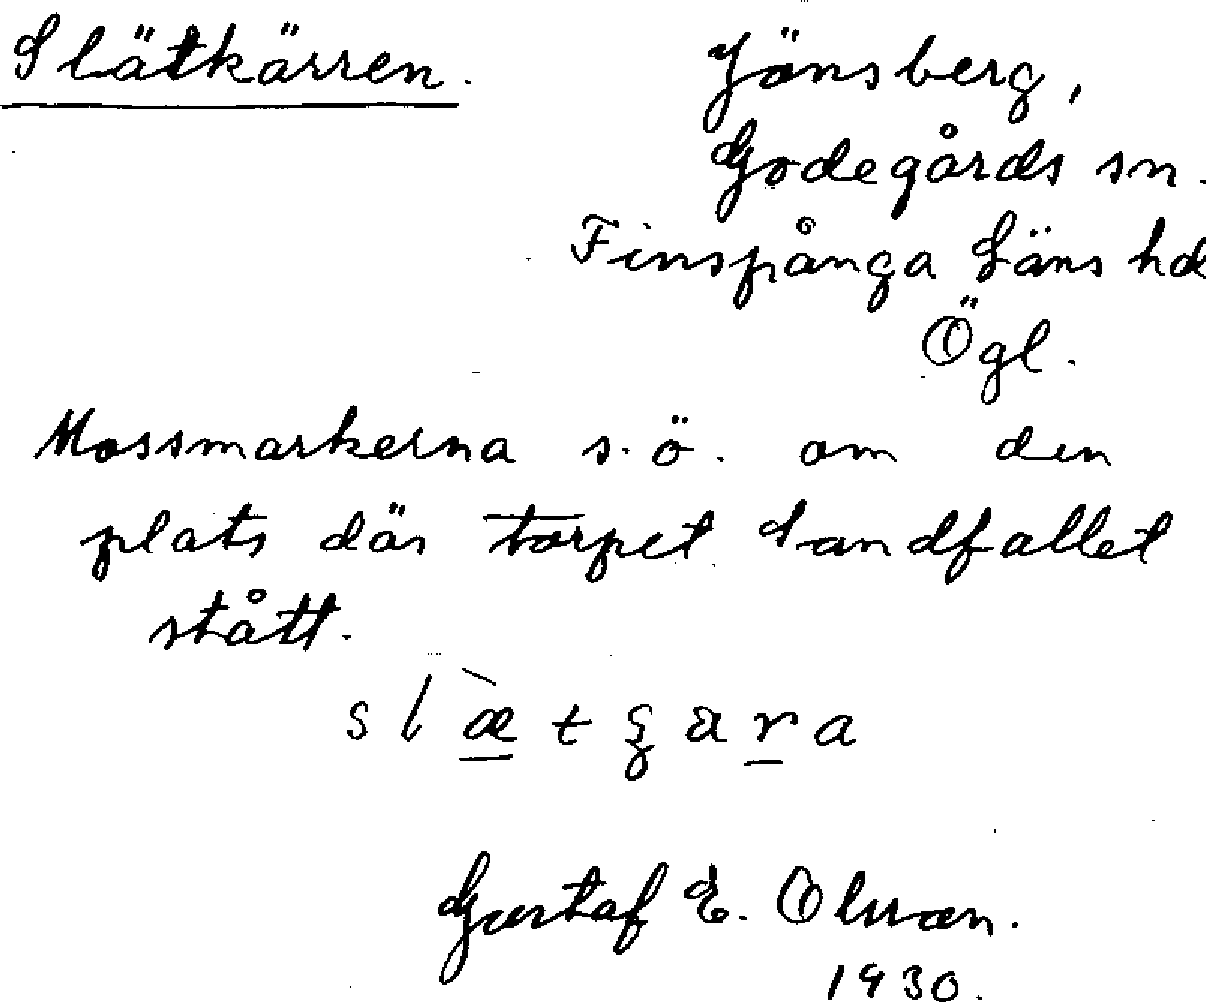 Slätkärren.
Jönsberg,
Godegårds sn.
Finspånga Läns hd
Ögl.
Mossmarkerna s.ö. om den
plats där torpet Sandfallet
stått.
Gustaf E. Olsson.
1930.